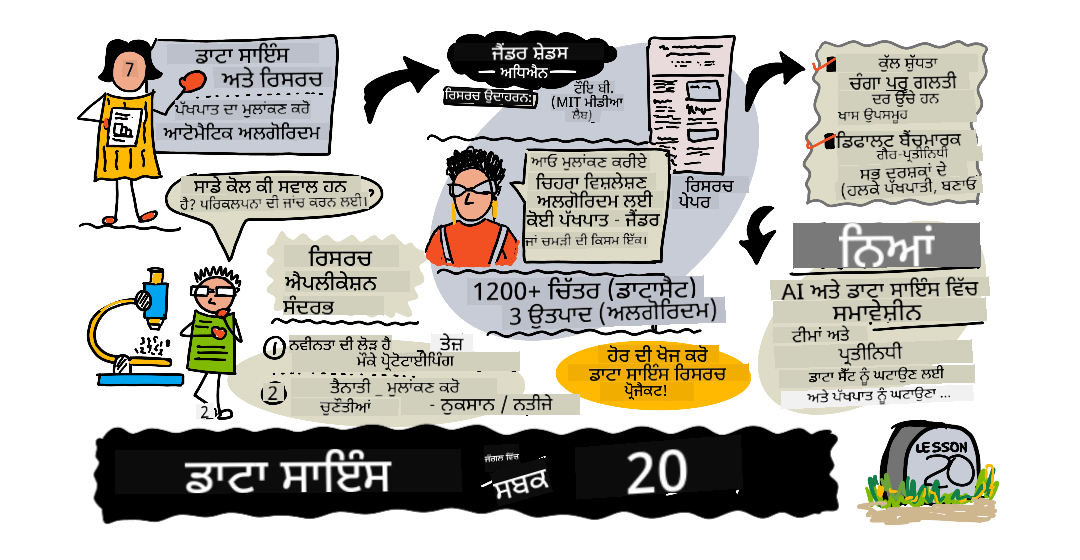 7
ਡਾਟਾ ਸਾਇੰਸ
ਅਤੇ ਰਿਸਰਚ
ਪੱਖਪਾਤ ਦਾ ਮੁਲਾਂਕਣ ਕਰੋ
ਆਟੋਮੈਟਿਕ ਅਲਗੋਰਿਦਮ
ਸਾਡੇ ਕੋਲ ਕੀ ਸਵਾਲ ਹਨ
ਹੈ? ਪਰਿਕਲਪਨਾ ਦੀ ਜਾਂਚ ਕਰਨ ਲਈ।
ਰਿਸਰਚ
ਐਪਲੀਕੇਸ਼ਨ
ਸੰਦਰਭ
1 ਨਵੀਨਤਾ ਦੀ ਲੋੜ ਹੈ ਤੇਜ਼
ਮੌਕੇ ਪ੍ਰੋਟੋਟਾਈਪਿੰਗ
2 ਤੈਨਾਤੀ _ ਮੁਲਾਂਕਣ ਕਰੋ
ਚੁਣੌਤੀਆਂ - ਨੁਕਸਾਨ / ਨਤੀਜੇ
ਜੈਂਡਰ ਸ਼ੇਡਸ
ਅਧਿਐਨ
ਰਿਸਰਚ ਉਦਾਹਰਨ:
ਟੌਇ ਬੀ.
(MIT ਮੀਡੀਆ
ਲੈਬ)
ਆਓ ਮੁਲਾਂਕਣ ਕਰੀਏ
ਚਿਹਰਾ ਵਿਸਲੇਸ਼ਣ
ਅਲਗੋਰਿਦਮ ਲਈ
ਕੋਈ ਪੱਖਪਾਤ - ਜੈਂਡਰ
ਜਾਂ ਚਮੜੀ ਦੀ ਕਿਸਮ ਇੱਕ।
ਰਿਸਰਚ
ਪੇਪਰ
1200+ ਚਿੱਤਰ (ਡਾਟਾਸੈਟ)
3 ਉਤਪਾਦ (ਅਲਗੋਰਿਦਮ)
ਹੋਰ ਦੀ ਖੋਜ ਕਰੋ
ਡਾਟਾ ਸਾਇੰਸ ਰਿਸਰਚ
ਪ੍ਰੋਜੈਕਟ!
ਕੁੱਲ ਸ਼ੁੱਧਤਾ
ਚੰਗਾ ਪਰੂ ਗਲਤੀ
ਦਰ ਉੱਚੇ ਹਨ
ਖਾਸ ਉਪਸਮੂਹ
ਡਿਫਾਲਟ ਬੈਂਚਮਾਰਕ
ਗੈਰ-ਪ੍ਰਤੀਨਿਧੀ
ਸਭ ਦਰਸ਼ਕਾਂ ਦੇ
(ਹਲਕੇ ਪੱਖਪਾਤੀ, ਬਣਾਓ
ਨਿਆਂ
AI ਅਤੇ ਡਾਟਾ ਸਾਇੰਸ ਵਿੱਚ
ਸਮਾਵੇਸ਼ੀਨ
ਟੀਮਾਂ ਅਤੇ
ਪ੍ਰਤੀਨਿਧੀ
ਡਾਟਾ ਸੈੱਟ ਨੂੰ ਘਟਾਉਣ ਲਈ
ਅਤੇ ਪੱਖਪਾਤ ਨੂੰ ਘਟਾਉਣਾ ...
ਡਾਟਾ ਸਾਇੰਸ
ਜੰਗਲ ਵਿੱਚ
ਸਬਕ
20
LESSON
20